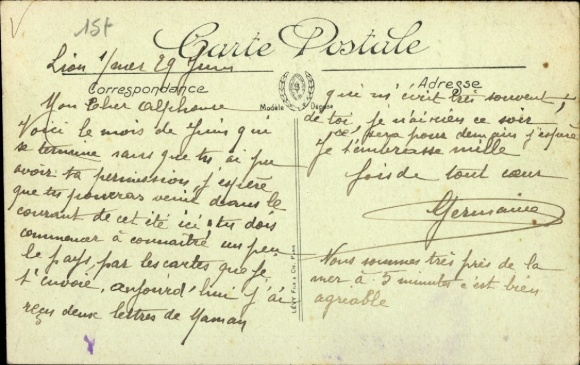 15f
Carte Postale
Lion s/mer 29 Juin
Correspondance
Adresse
Modèle Déposé
Mon Cher Alphonse
Voici le mois de Juin qui
se termine sans que tu ai pu
avoir ta permission, j'espère
que tu pourras venir dans le
courant de cet été ici. tu dois
commencer à connaître un peu
le pays par les cartes que je
t'envoie, aujourd'hui j'ai
reçu deux lettres de Maman
qui m'écrit très souvent,
de toi je n'ai rien ce soir
ce sera pour demain j'espère
Je t'embrasse mille
fois de tout cœur
Germaine
Nous sommes très près de la
mer à 5 minutes c'est bien
agréable
LÉVY Fils & Cie, Paris